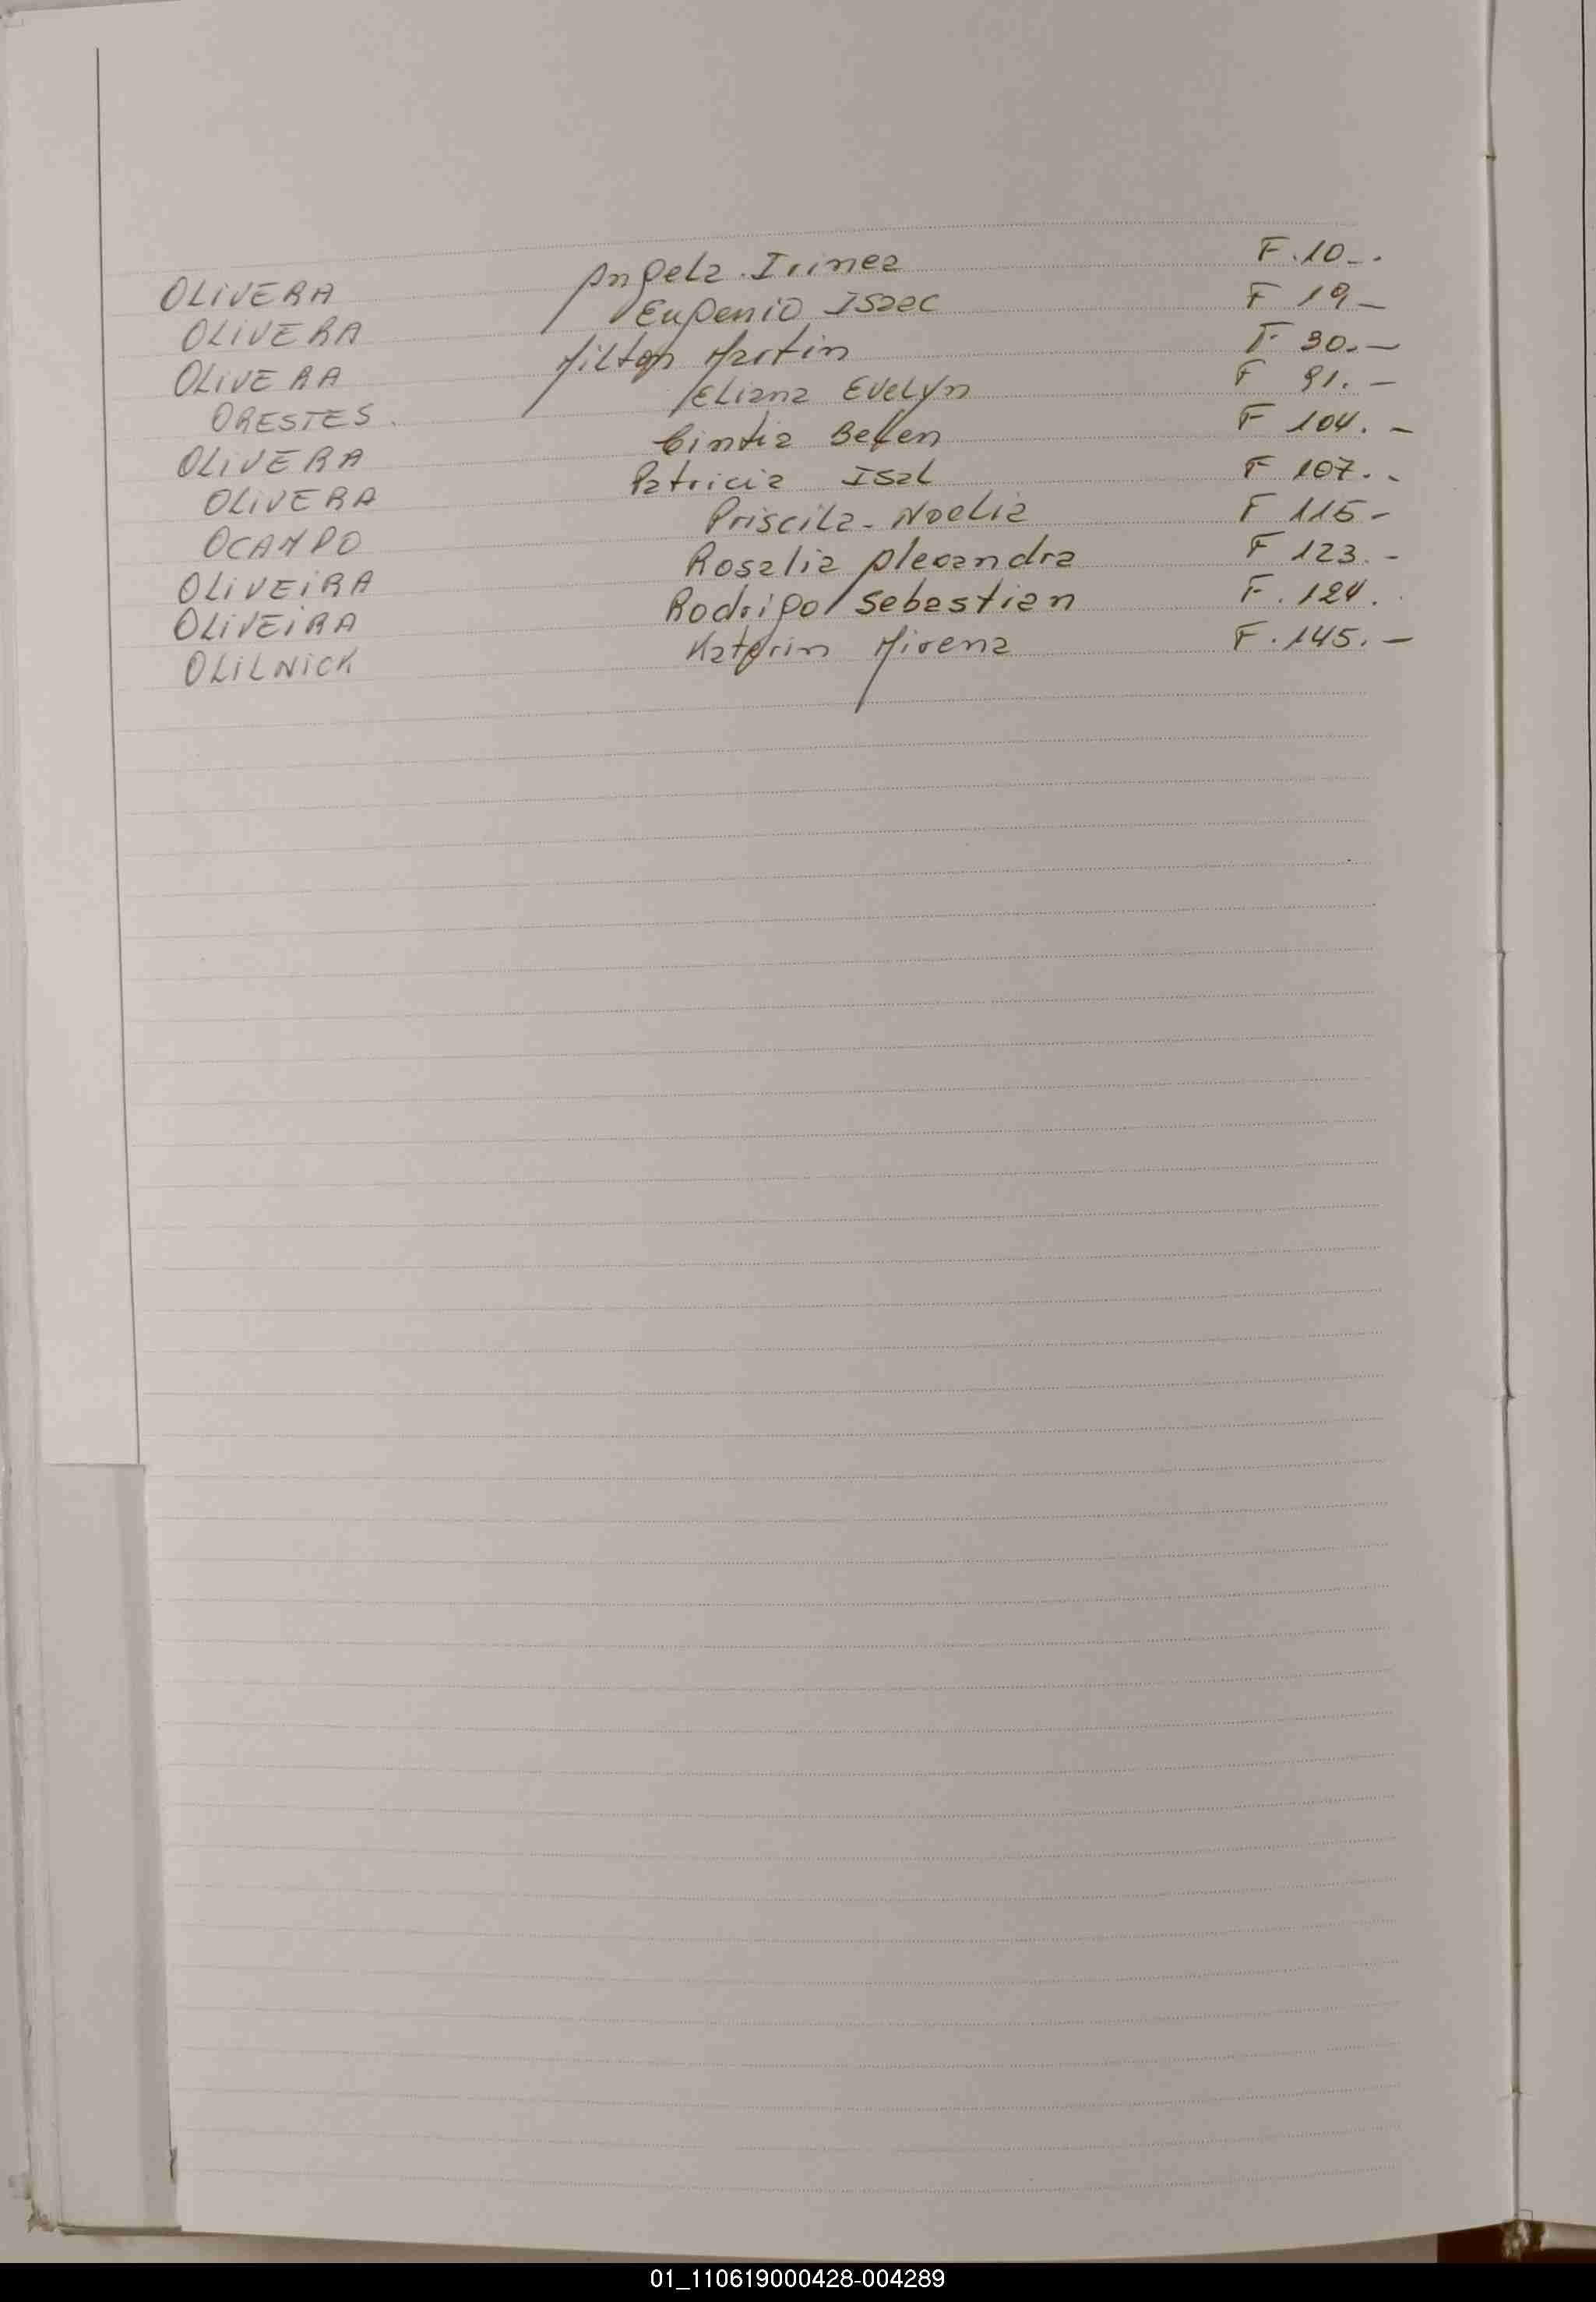 OLIVERA Angela. Irinea F. 10_.
OLIVERA Eugenio Isaac F 19_
OLIVERA Milton Martin F 30._
ORESTES. Eliana Evelyn F 91. _
OLIVERA Cintia Belen F 104. _
OLIVERA Patricia Isal F 107. -
OCAMPO Priscila - Noelia F 115 -
OLIVEIRA Rosalia Alexandra F 123. -
OLIVEIRA Rodrigo Sebastian F. 124.
OLILNICK Katerin Mirena F. 145. _
01_110619000428-004289